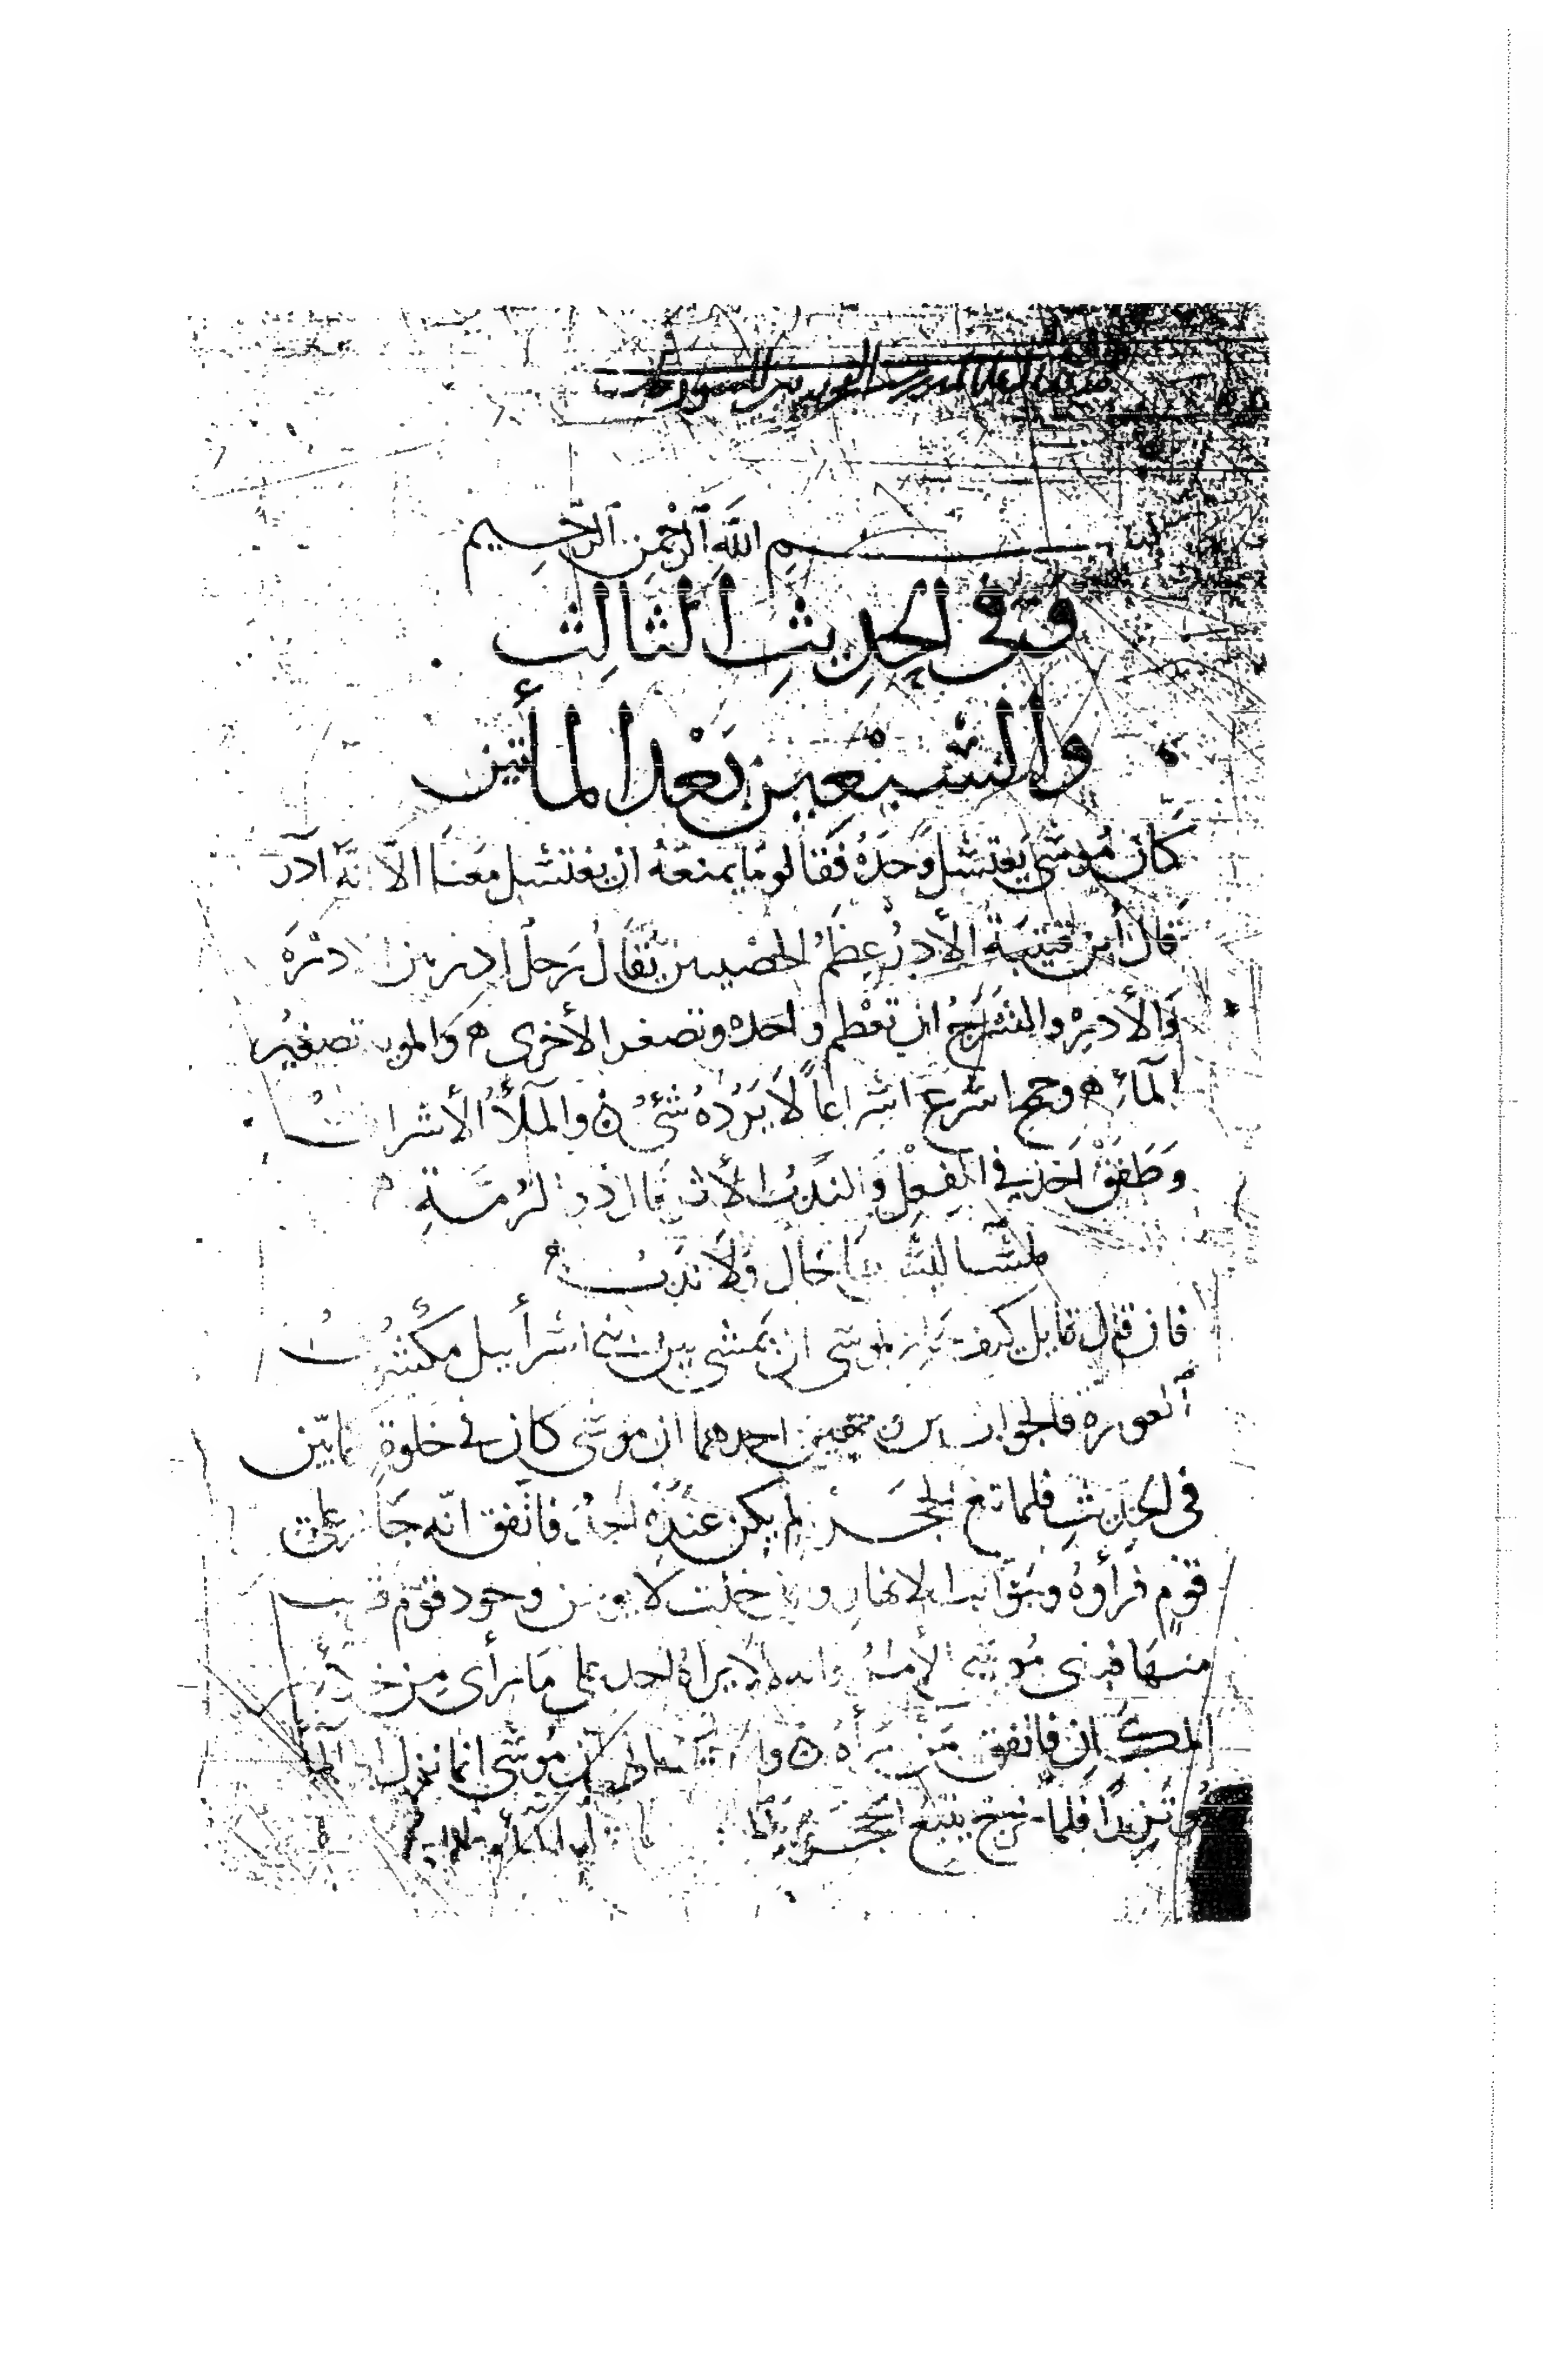 بسم الله الرحمن الرحيم
وفى الحديث الثالث
والسبعين بعد المأتين
كان موسى يغتسل وحده فقالو ما يمنعه ان يغتسل معنا الا انه آدر
قال ابن قتيبة الأدر عظم الخصيين يقال رجل ادر بين الادرة
والأدرة والشرج ان تعظم واحده وتصغر الأخرى ه والمويه تصغير
الماء ه وجمح اسرع اسراعاً لا يرده شئ ه والملأ الأشراف
وطفق اخذ في الفعل والندب الأثر قال ذو الرمة
ملسا ليس بها خال ولا ندب
فان قال قايل كيف جاز لموسى ان يمشي بين بني اسرأيل مكشوف
العورة فالجواب من وجهين احدهما ان موسى كان في خلوة كما بين
في الحديث فلما تبع الحجر لم يكن عنده احد فاتفق انه جاز على
قوم فرأوه وجوانب الانهار وان خلت لا يؤمن وجود قوم قريب
منها فبنى موسى الأمر انه لا يراه احد على ما رأى من خلو
المكان فاتفق من رأه ه والثاني ان موسى انما نزل الى الماء
مؤتزراً فلما خرج يتبع الحجر